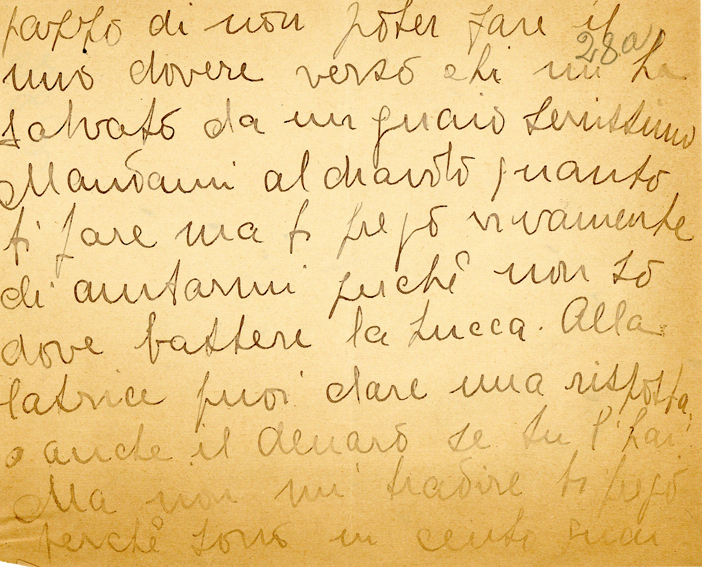 pazzo di non poter fare il
28a
mio dovere verso chi mi ha
salvato da un guaio serissimo
Mandami al diavolo quanto
ti pare ma ti prego vivamente
di aiutarmi perchè non so
dove battere la zucca. Alla
latrice puoi dare una risposta,
o anche il denaro se tu l'hai
Ma non mi tradire ti prego
perchè sono in cento guai